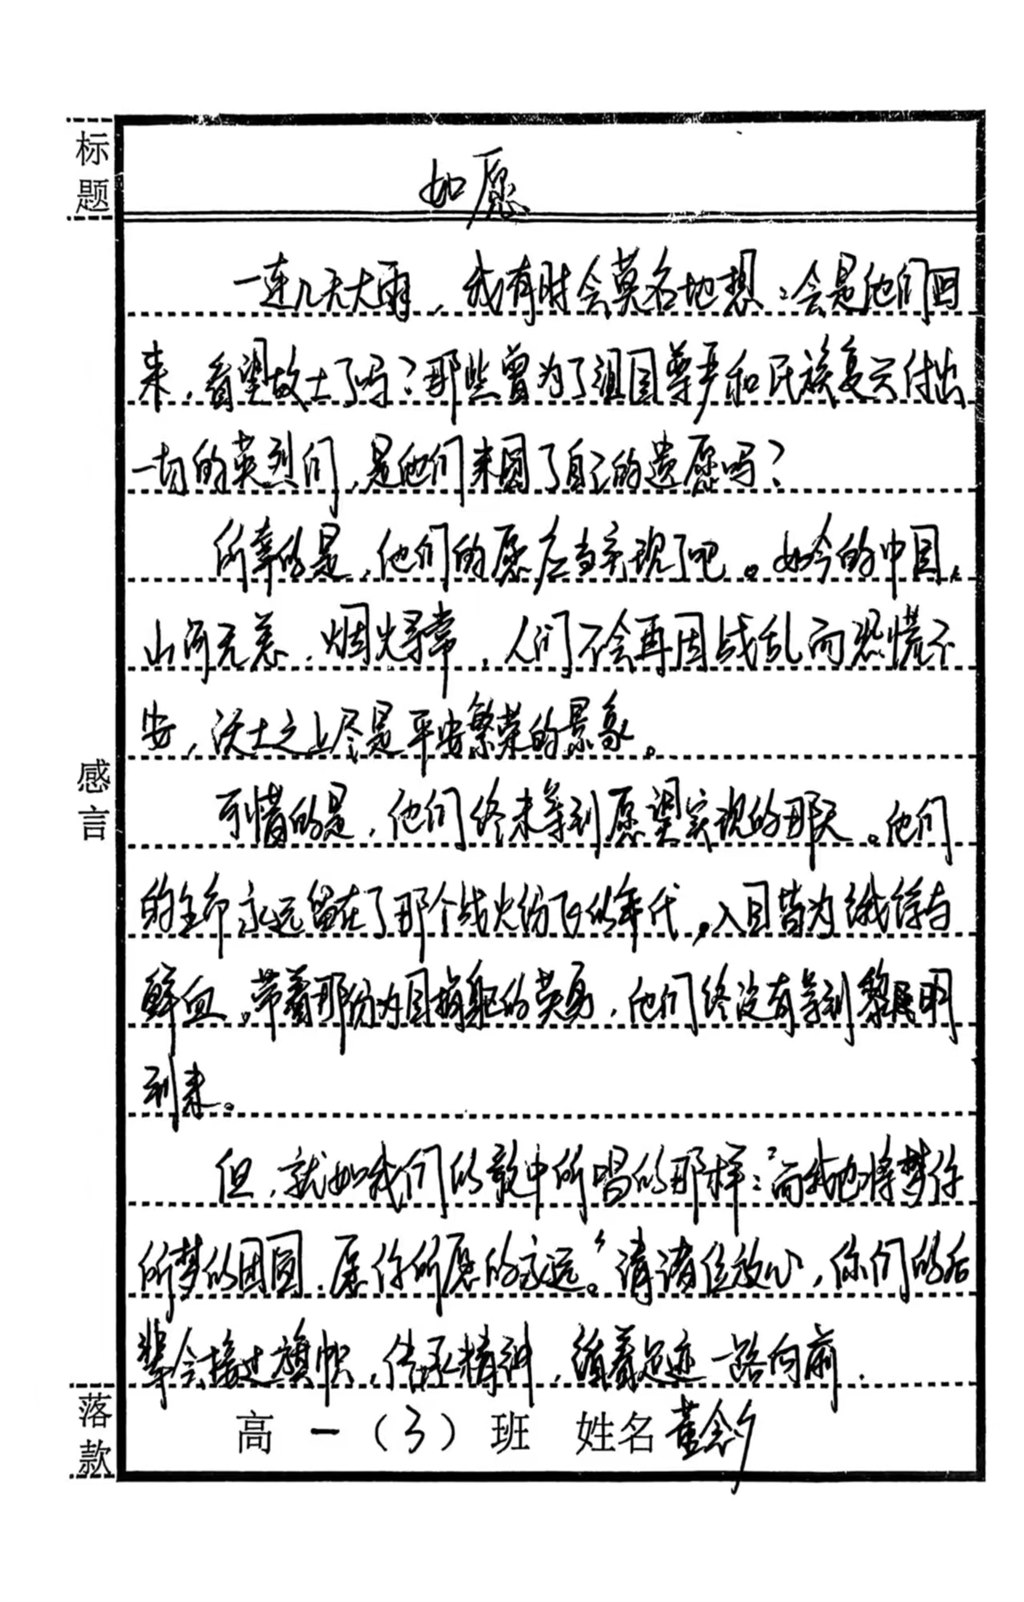 标题
如愿
一连几天大雨，我有时会莫名地想：会是他们回
来，看望故土了吗？那些曾为了祖国尊严和民族复兴付出
一切的英烈们，是他们来圆了自己的遗愿吗？
所幸的是，他们的愿应当实现了吧。如今的中国，
山河无恙，烟火寻常，人们不会再因战乱而恐慌不
安，沃土之上尽是平安繁荣的景象。
感言
可惜的是，他们终未等到愿望实现的那天。他们
的生命永远留在了那个战火纷飞的年代，入目皆为饿殍与
鲜血。带着那份为国捐躯的英勇，他们终没有等到黎明
到来。
但，就如我们的歌中所唱的那样：“而我也将梦你
所梦的团圆，愿你所愿的永远。”请诸位放心，你们的后
辈会接过旗帜，传承精神，循着足迹一路向前.
落款
高一（3）班 姓名 董念